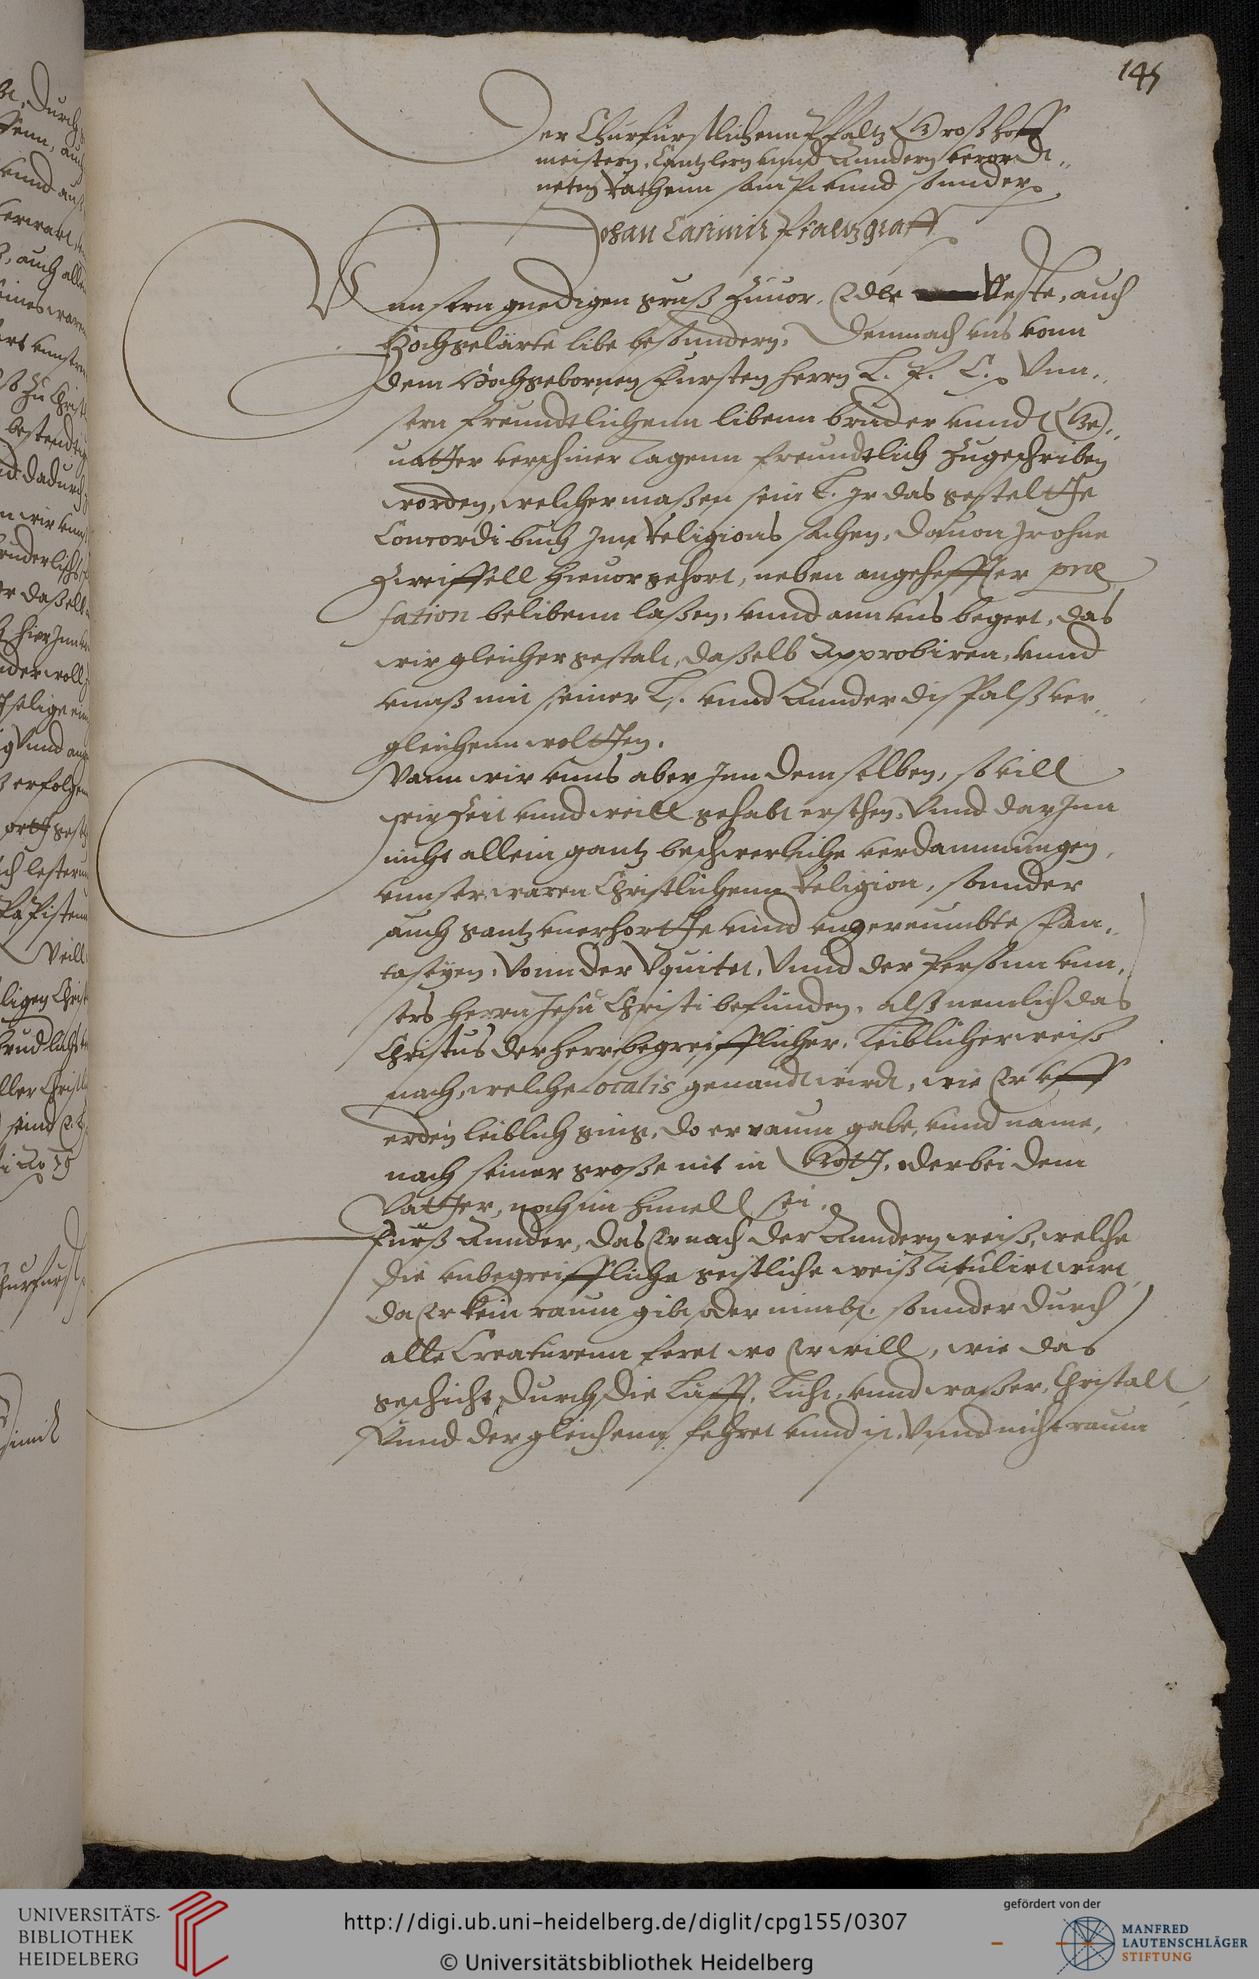 145
Der Churfurstlichenn Pfaltz Großhoff
meistern, Cantzlern vnnd Anndern verord
neten Rathenn sampt vnnd sonder
Johan Casimir Pfaltzgraff
Vnnsern gnedigen gruß zuuor, Edle Veste, auch
Hochgelärte libe besonndern, Demnach vns vonn
dem Hochgebornen Fursten herrn L. P. C. Vnn„
sern freundtlichenn libenn bruder vnnd Geŭ„
uatter verschiner Tagenn freundtlich zugeschriben
worden, welchermaßen sein L. Ir das gesteltte
Concordi buch Inn Religions sachen, dauon Ir ohne
zweiffell hieuor gehort, neben angeheffter præ
fation beliebenn laßen, vnnd ann vns begert, das
wir gleicher gestalt, daßelb Approbiren, vnnd
vnnß mit seiner L. vnnd Annder disfalß ver„
gleichenn woltten.
Wann wir vnns aber Inn demselben, so vill
wir Zeit vnnd weill gehabt ersehen, Vnnd darInn
nicht allein gantz beschwerliche verdammungen,
vnnser waren Christlichenn Religion, sonnder
auch gantz vnerhortte vnnd vngereumbte fan„
taseyen, Vonn der Vbiquitet, Vnnd der Personn vnn„
sers Herrn Jesu Christi befunden, alß nemlich das
Christus der herr begreifflicher, leiblicher weiß
nach, welche Localis genandt wirdt, wie Er vff
erden leiblich ging, do er raum gabe, vnnd name,
nach seiner große nit in Gott, oder bei dem
Vatter, noch im himell sei.
Furß Annder, das Er nach der Anndern weiß, welche
die vnbegreiffliche geistliche weiß Titulirt wirt
da Er kein raum gibt oder nimbt, sonnder durch
alle Creaturenn feret wo Er will, wie das
geschicht, durch die Lufft, Licht, vnnd waßer, Christall
Vnnd dergleichenn fehret vnnd ist, Vnnd nicht raum
UNIVERSITÄTS-
BIBLIOTHEK
HEIDELBERG
http://digi.ub.uni-heidelberg.de/diglit/cpg155/0307
© Universitätsbibliothek Heidelberg
gefördert von der
MANFRED
LAUTENSCHLÄGER
STIFTUNG